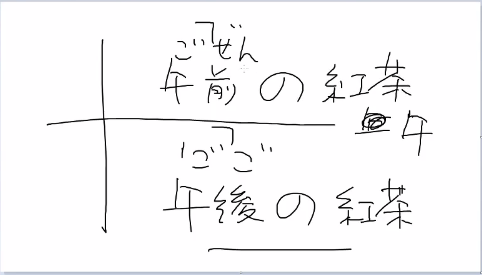 ごぜん
午前の紅茶
午
ごご
午後の紅茶